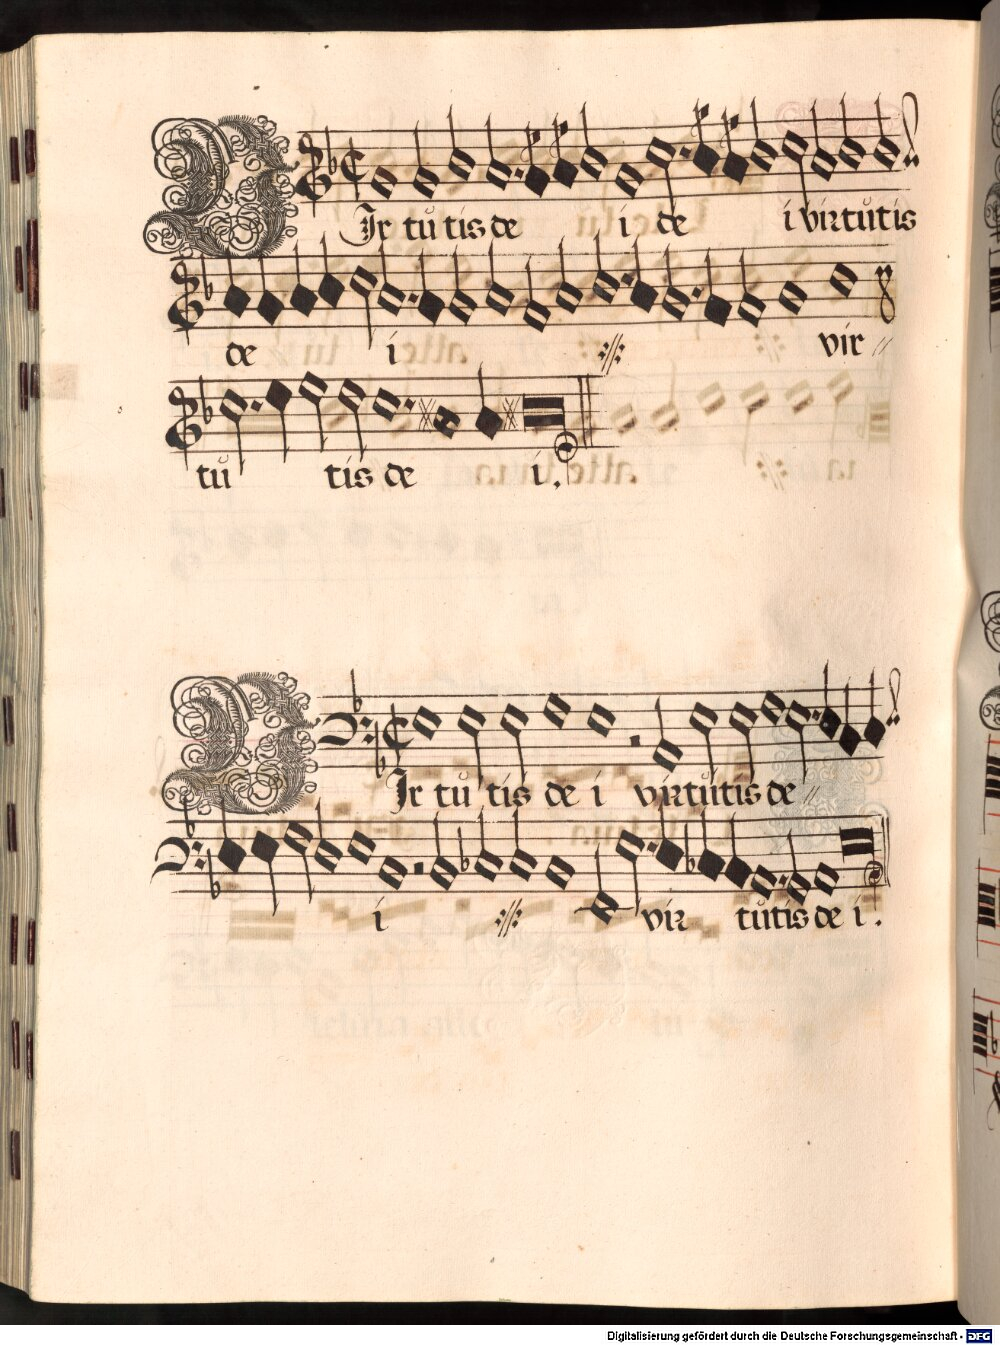 VIr tu tis de i de i virtutis
de i :||: vir
tu tis de i.
VIr tu tis de i virtutis de
i :||: vir tutis de i.
Digitalisierung gefördert durch die Deutsche Forschungsgemeinschaft - DFG